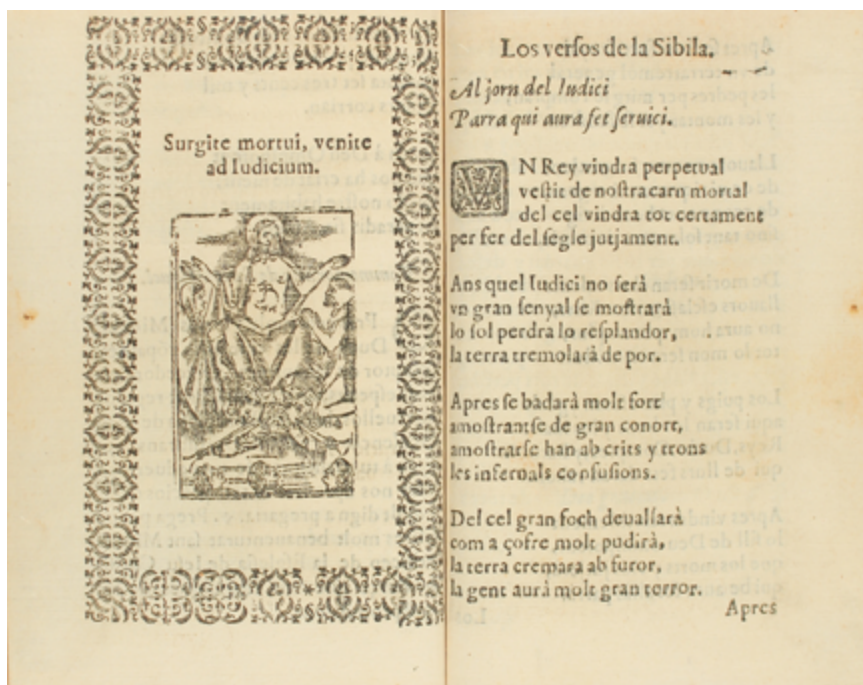 Surgite mortui, venite
ad Iudicium.
Los versos de la Sibila.
Al jorn del Iudici
Parra qui aura fet seruici.
VN Rey vindra perpetual
vestit de nostra carn mortal
del cel vindra tot certament
per fer del segle jutjament.
Ans quel Iudici no serà
vn gran senyal se mostrarà
lo sol perdra lo resplandor,
la terra tremolarà de por.
Apres se badarà molt fort
amostrantse de gran conort,
amostrarse han ab crits y trons
les infernals confusions.
Del cel gran foch deuallarà
com a çofre molt pudirà,
la terra cremara ab furor,
la gent aurà molt gran terror.
Apres